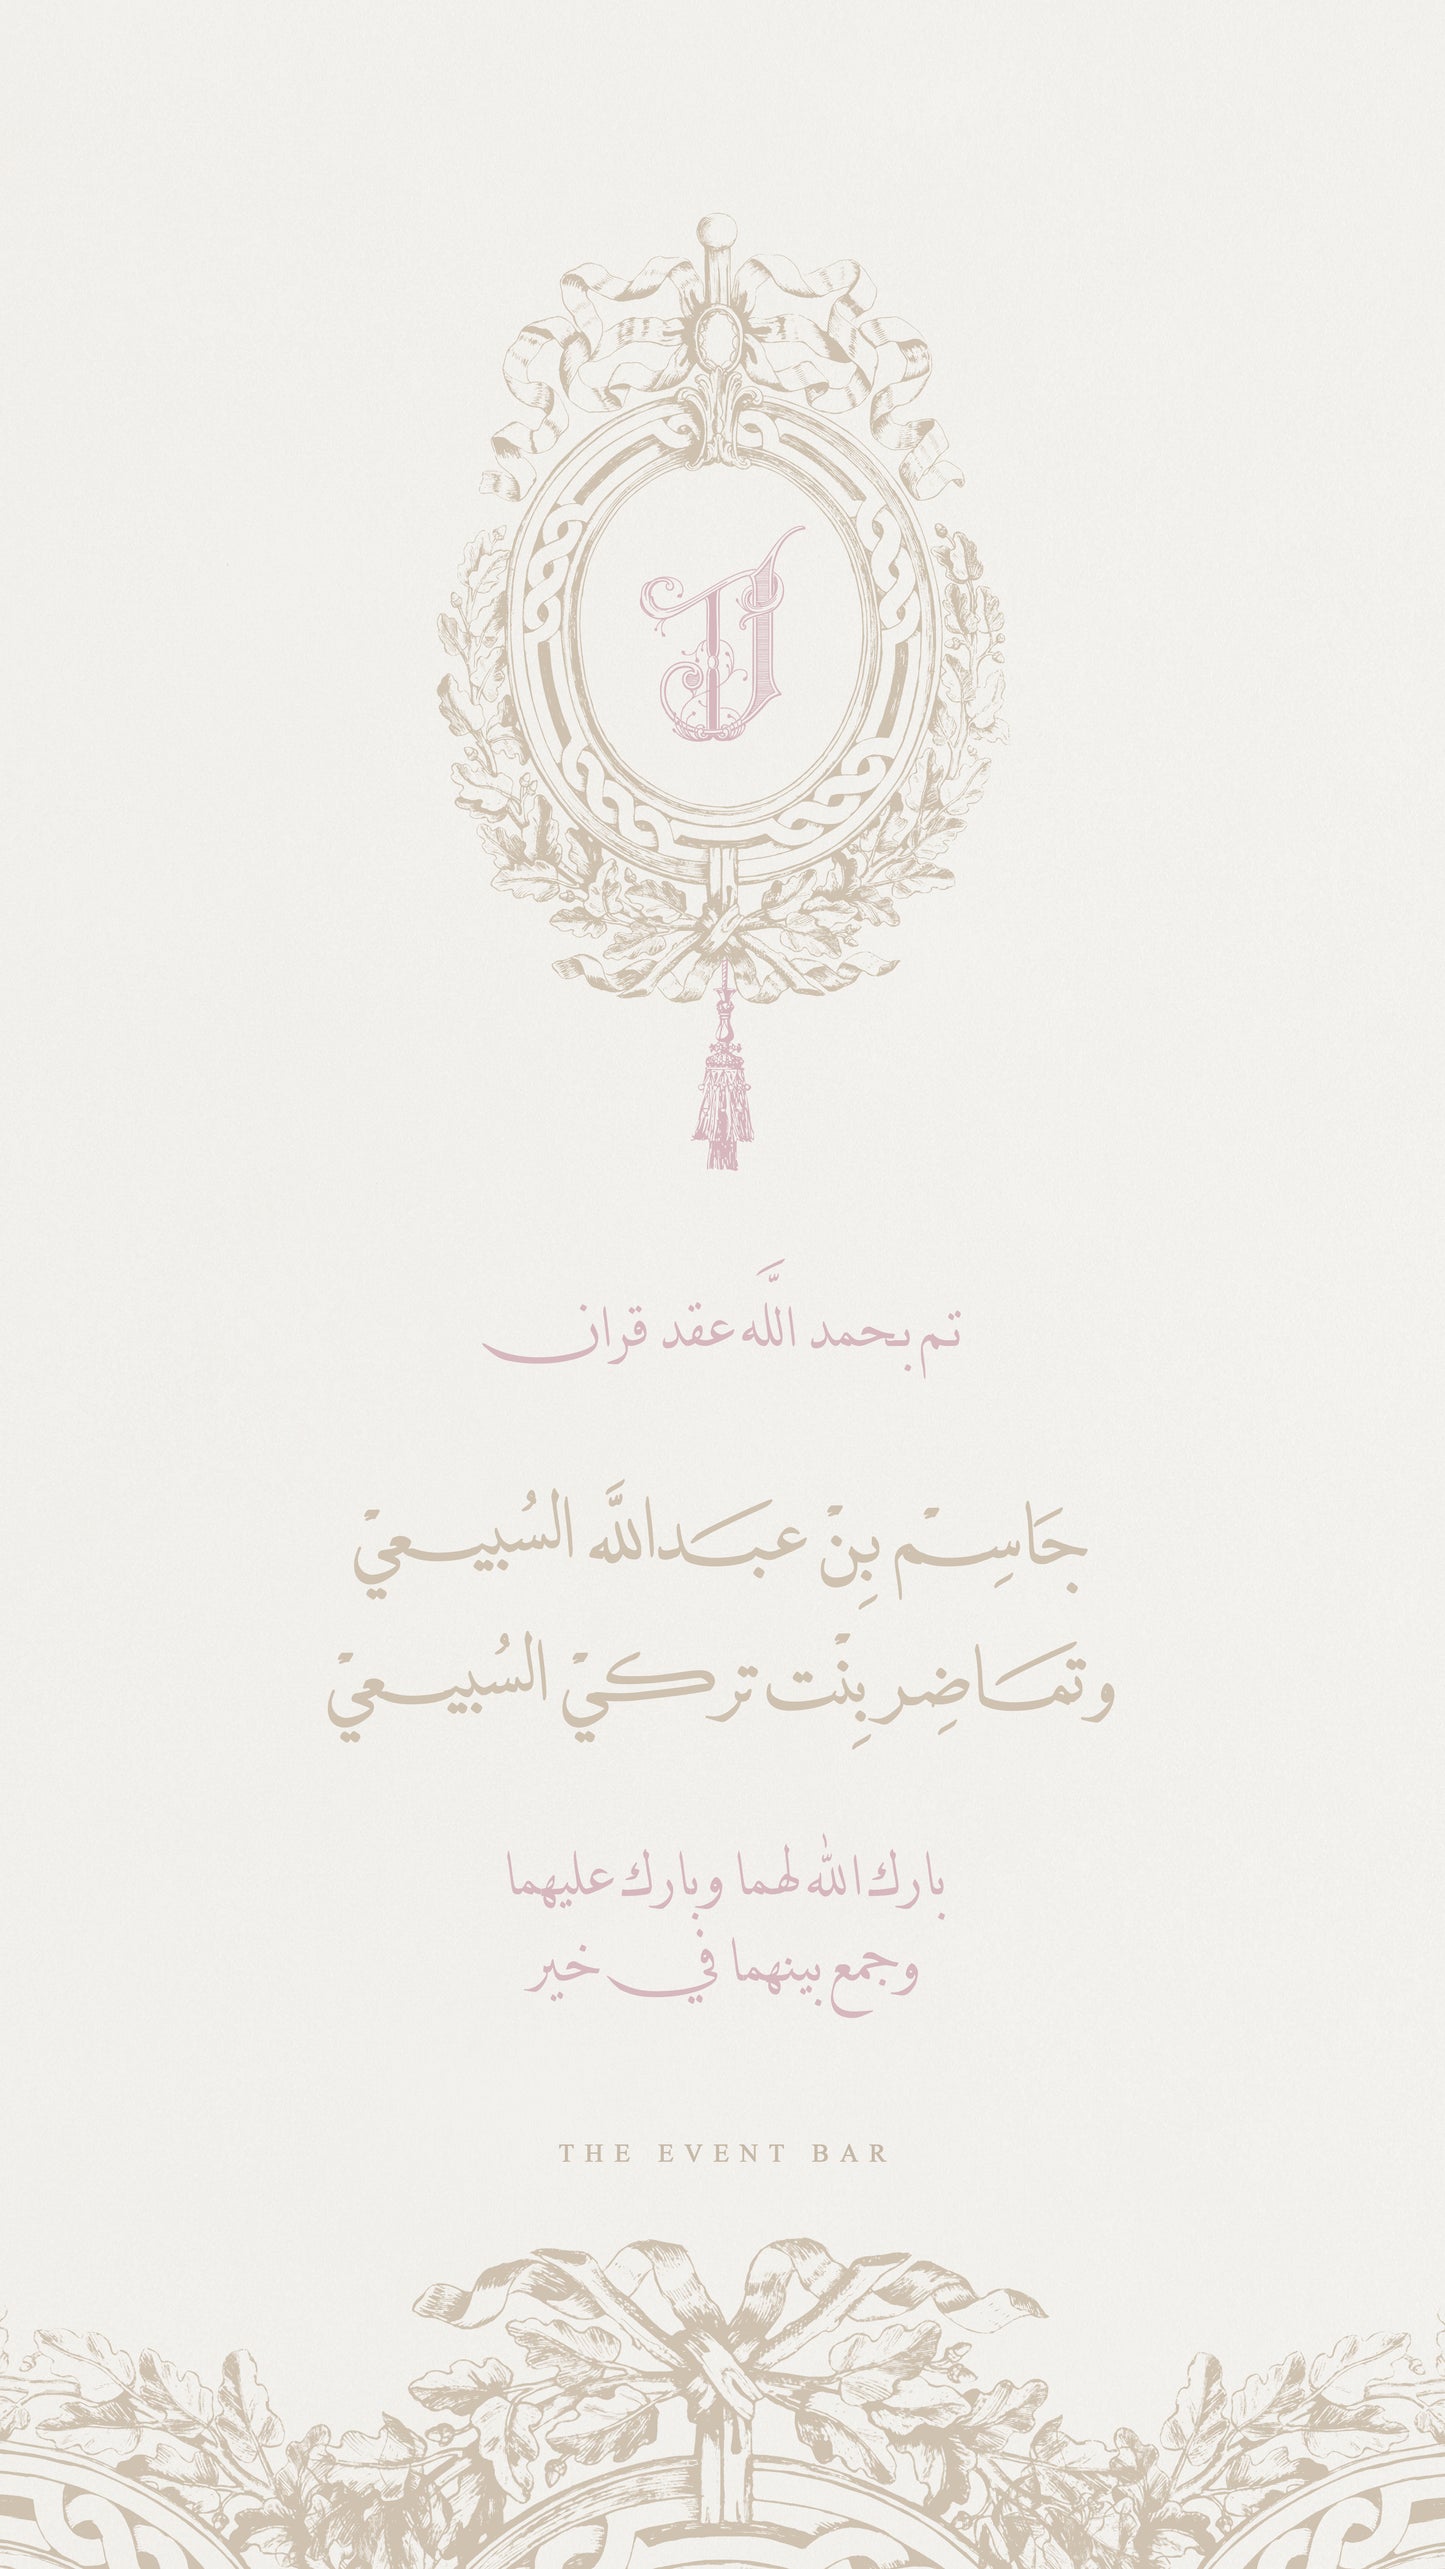 TJ
تم بحمد اللَّه عقد قران
جَاسِمْ بِنْ عبَداللَّه السُبيعيْ
وتمَاضِر بِنْت تركيْ السُبيعيْ
بارك الله لهما وبارك عليهما
وجمع بينهما في خير
THE EVENT BAR